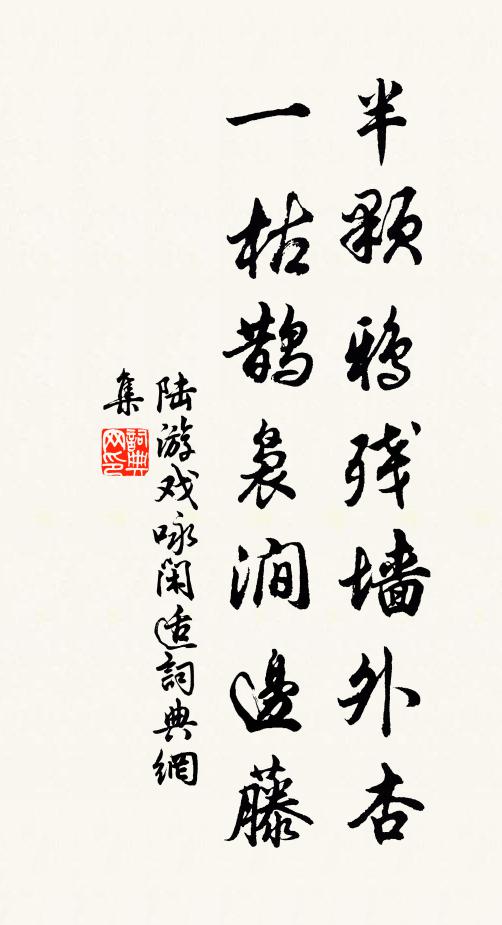 半颗鸦残墙外杏
一枯鹊袅涧邊藤
陆游戏咏闲适詞典網
集
詞典
网印